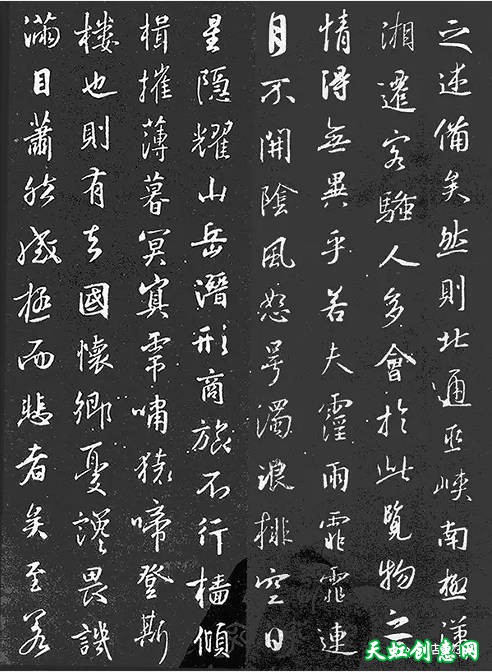 之述備矣然則北通巫峽南極瀟
湘遷客騷人多會於此覽物之
情得無異乎若夫霪雨霏霏連
月不開陰風怒号濁浪排空日
星隱耀山岳潛形商旅不行檣傾
楫摧薄暮冥冥虎嘯猿啼登斯
樓也則有去國懷鄉憂讒畏譏
滿目蕭然感極而悲者矣至若
天虹创意网